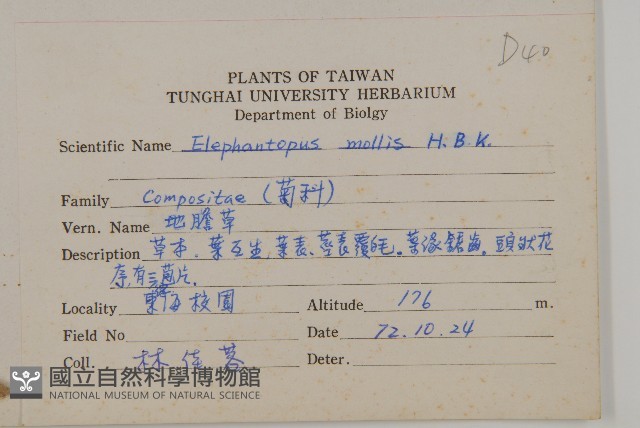 D40
PLANTS OF TAIWAN
TUNGHAI UNIVERSITY HERBARIUM
Department of Biolgy
Scientific Name Elephantopus mollis H.B.K.
Family Compositae (菊科)
Vern. Name 地膽草
Description 草本,葉互生,葉表、莖表覆毛。葉緣鋸齒。頭狀花
序,有三苞片.
Locality 東海校園 Altitude 176 m.
Field No Date 72.10.24
Coll. 林佳蓉 Deter.
國立自然科學博物館
NATIONAL MUSEUM OF NATURAL SCIENCE